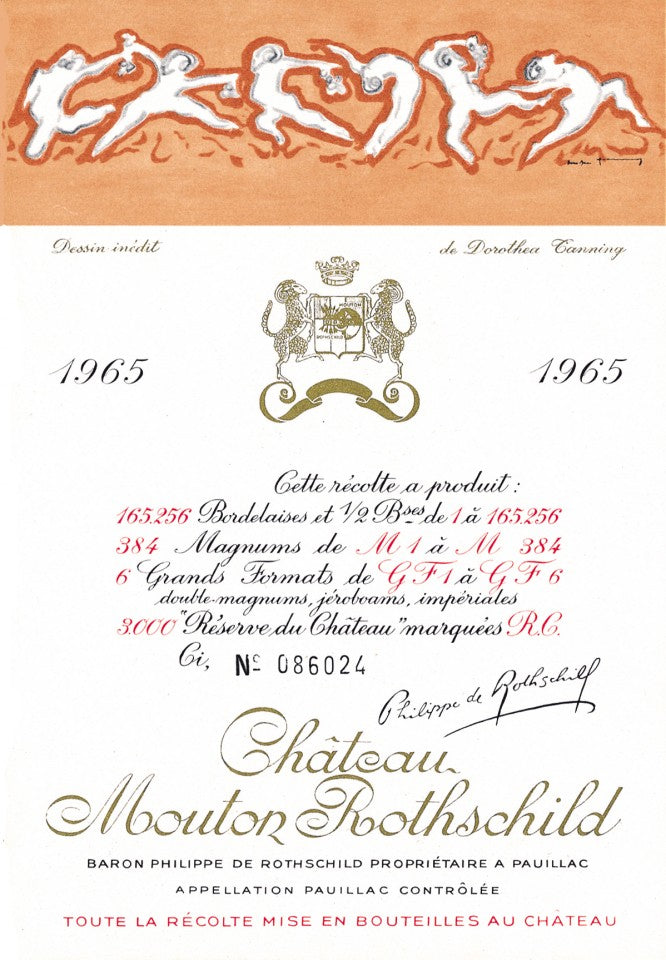 Dessin inédit de Dorothea Tanning
MOUTON
ROTHSCHILD
1965 1965
Cette récolte a produit :
165.256 Bordelaises et 1/2 Bses de 1 à 165.256
384 Magnums de M 1 à M 384
6 Grands Formats de G F 1 à G F 6
double-magnums, jéroboams, impériales
3.000 "Réserve du Château" marquées R.C.
Ci, Nº 086024
Philippe de Rothschild
Château
Mouton Rothschild
BARON PHILIPPE DE ROTHSCHILD PROPRIÉTAIRE A PAUILLAC
APPELLATION PAUILLAC CONTRÔLÉE
TOUTE LA RÉCOLTE MISE EN BOUTEILLES AU CHÂTEAU